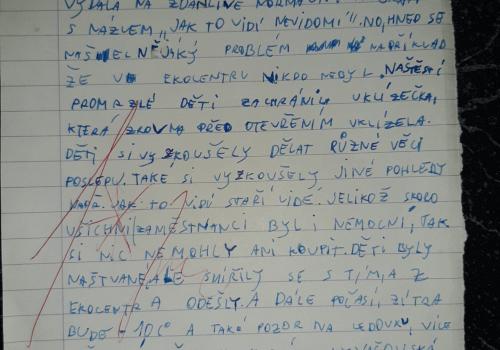 VYDALA NA ZDÁNLIVĚ NORMÁLNÍ
S NÁZVEM „JAK TO VIDÍ NEVIDOMÍ". NO, HNED SE
NAŠEL NĚJAKÝ PROBLÉM NAPŘÍKLAD
ŽE V EKOCENTRU NIKDO NEBYL. NAŠTĚSTÍ
PROMRZLÉ DĚTI ZACHRÁNILA UKLÍZEČKA,
KTERÁ ZROVNA PŘED OTEVŘENÍM UKLÍZELA.
DĚTI SI VYZKOUŠELY DĚLAT RŮZNÉ VĚCI
POSLEPU. TAKÉ SI VYZKOUŠELY JINÉ POHLEDY
JAK TO VIDÍ STAŘÍ LIDÉ. JELIKOŽ SKORO
VŠICHNI ZAMĚSTNANCI BYLI NEMOCNÍ, TAK
SI NIC NEMOHLY ANI KOUPIT. DĚTI BYLY
NAŠTVANÉ, ALE SMÍŘILY SE S TÍM, A Z
EKOCENTRA ODEŠLY. A DÁLE POČASÍ, ZÍTRA
BUDE -10C° A TAKÉ POZOR NA LEDOVKU, VÍCE